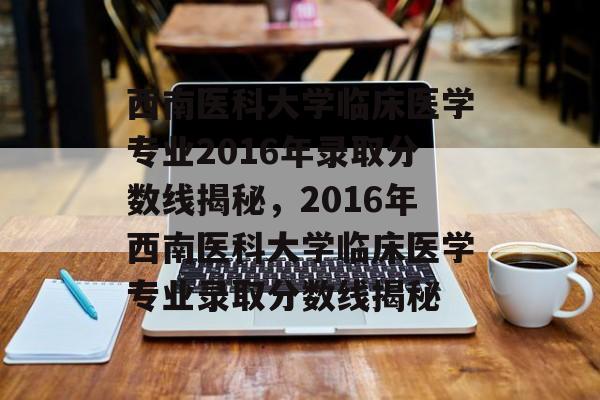 西南医科大学临床医学
专业2016年录取分
数线揭秘，2016年
西南医科大学临床医学
专业录取分数线揭秘